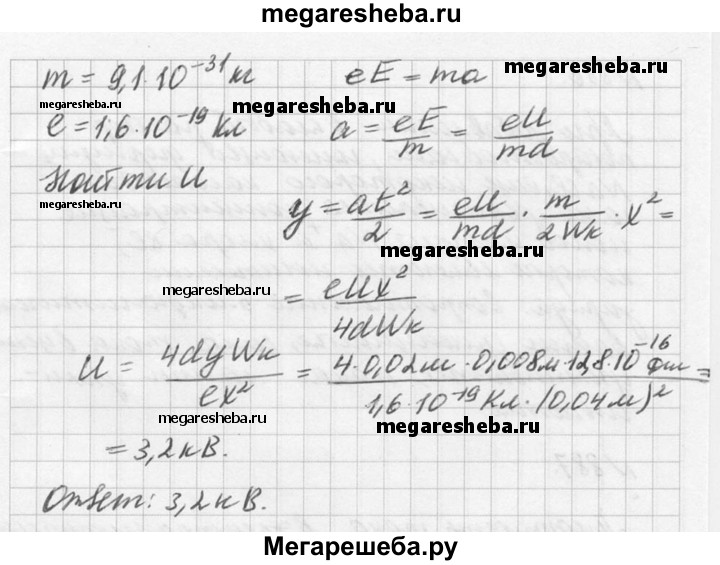 megaresheba.ru
m = 9,1·10⁻³¹ кг eE = ma megaresheba.ru
megaresheba.ru megaresheba.ru
e = 1,6·10⁻¹⁹ Кл a = eE/m = eU/md
Найти U
megaresheba.ru
y = at²/2 = eU/md · m/2Wк · x² =
megaresheba.ru
megaresheba.ru = eUx²/4dWк
U = 4dyWк/ex² = 4·0,02м·0,008м·12,8·10⁻¹⁶ Дж/1,6·10⁻¹⁹ Кл·(0,04м)² =
megaresheba.ru
= 3,2кВ.
Ответ: 3,2кВ.
Мегарешеба.ру